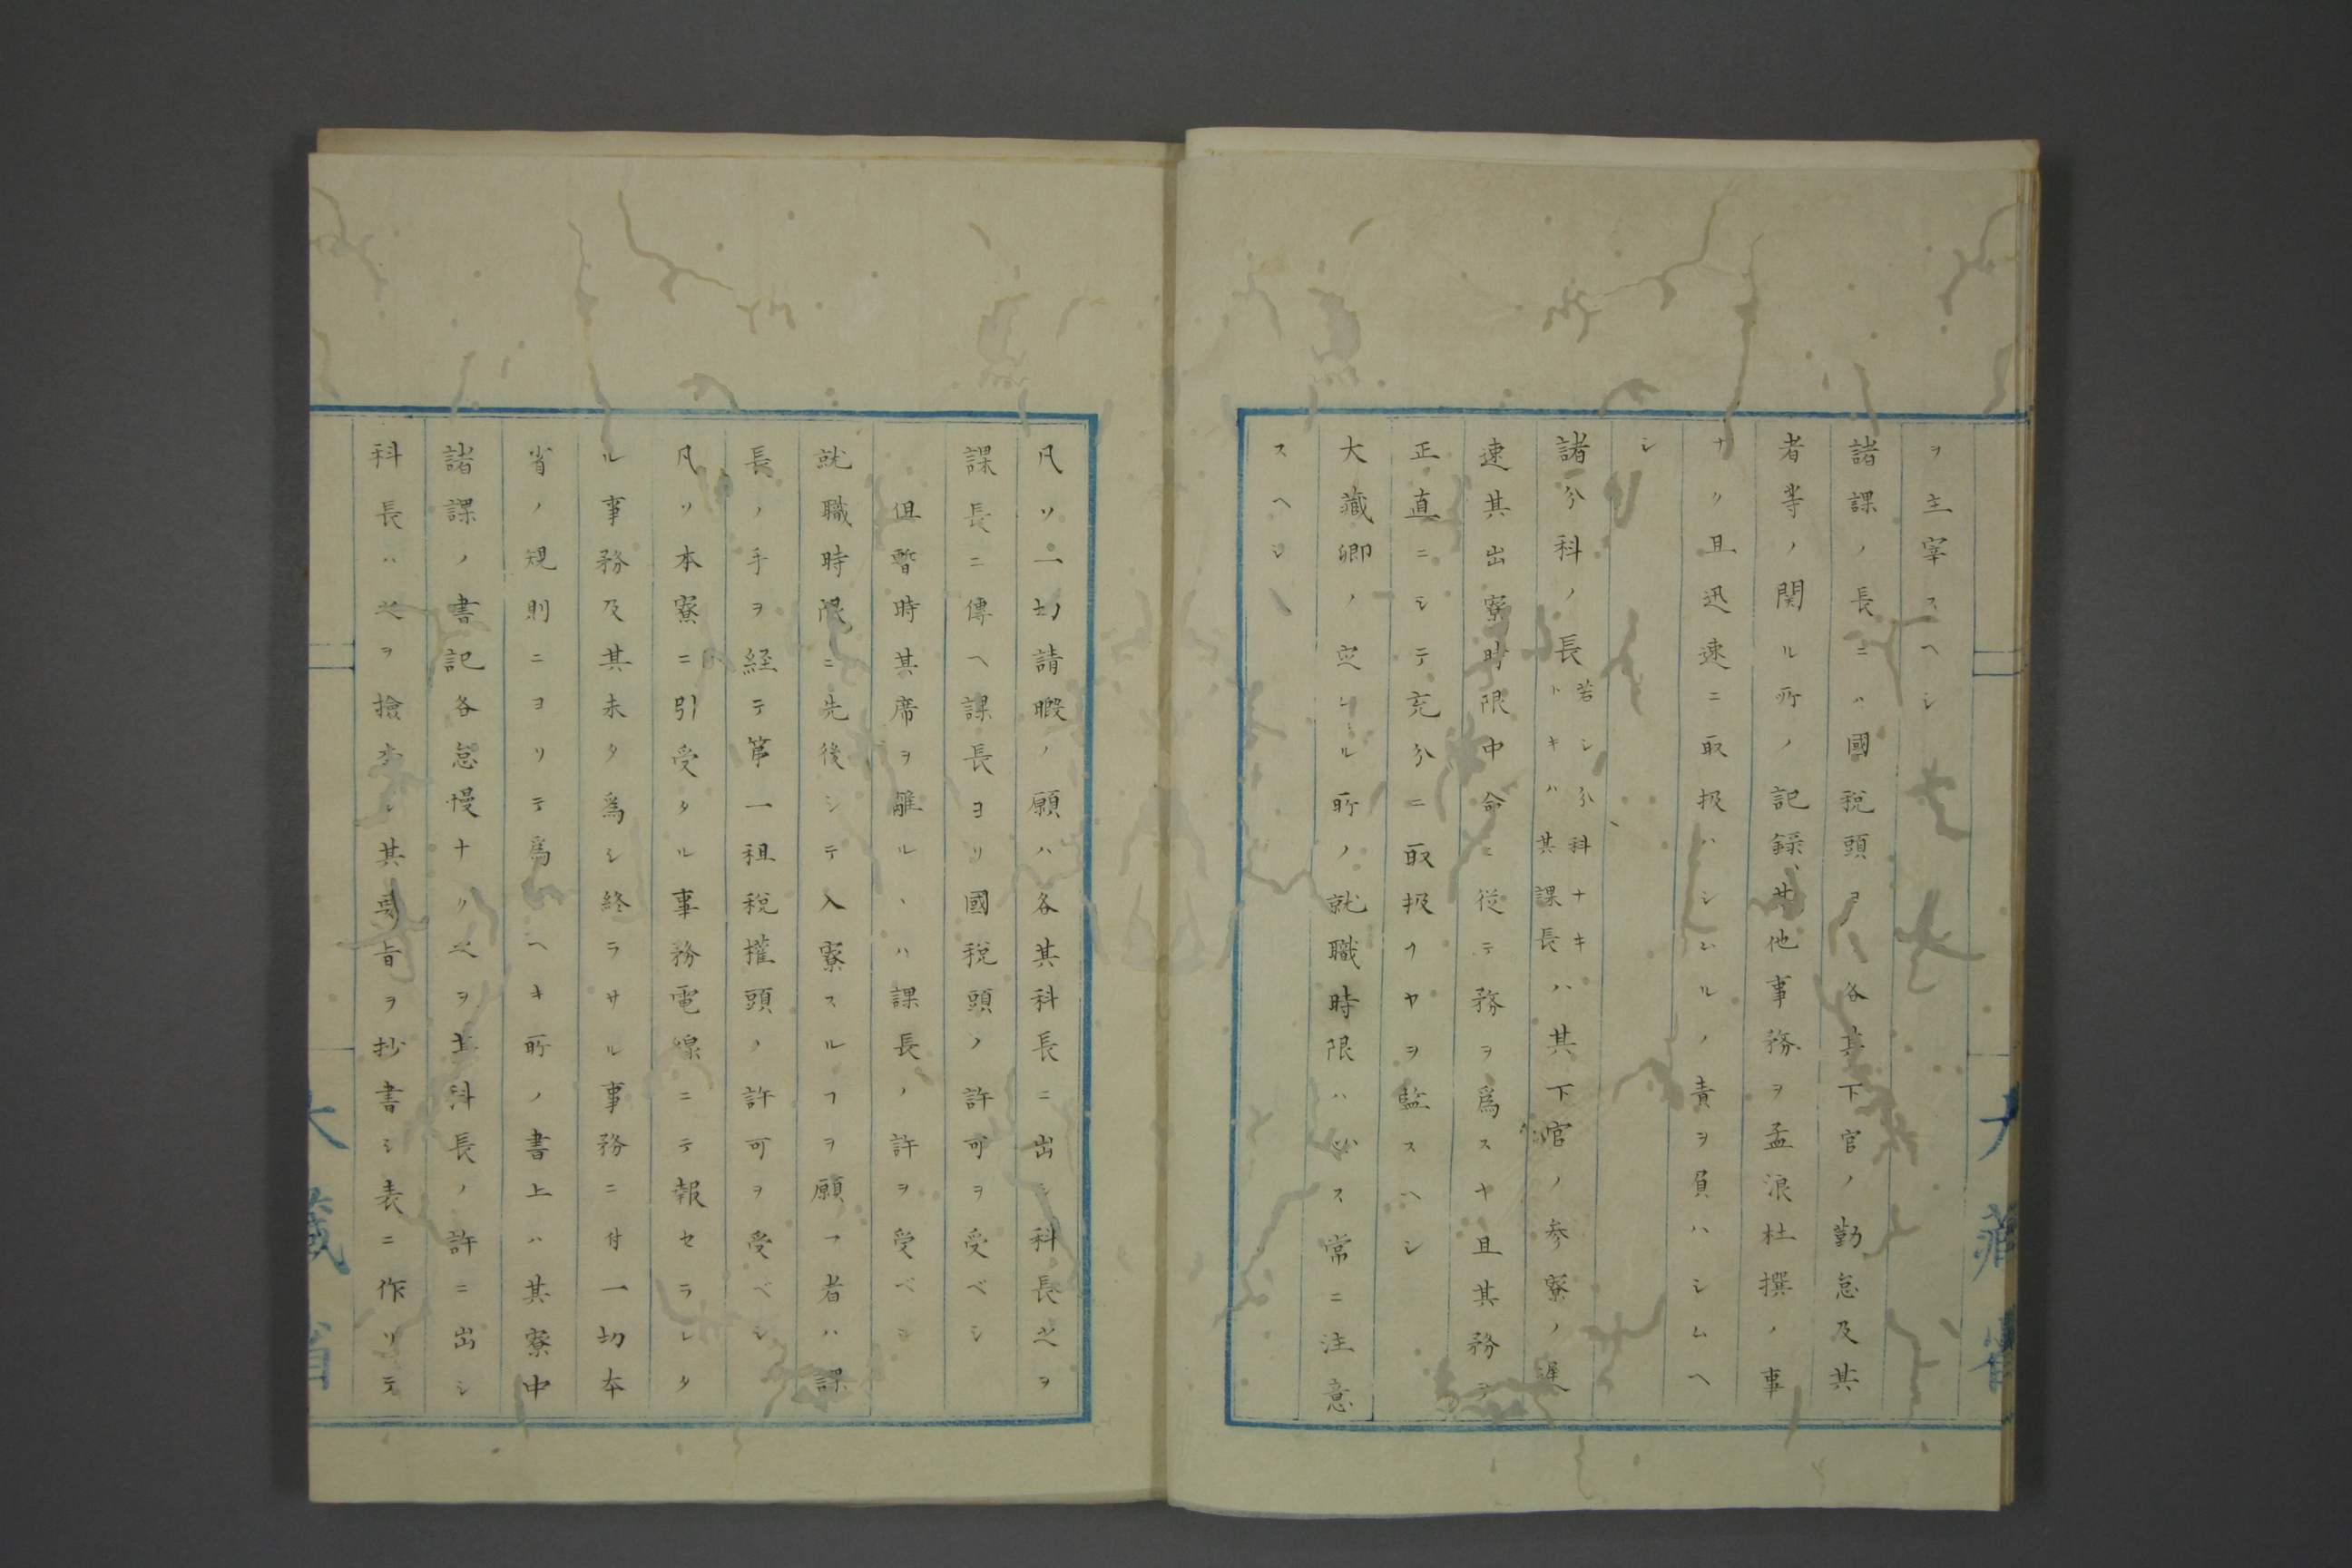 ヲ主宰スヘシ
諸課ノ長ニハ國税頭ヨリ各其下官ノ勤怠及其
者等ノ関ル所ノ記録其他事務ヲ孟浪杜撰ノ事
ナリ且迅速ニ取扱ハシムルノ責ヲ負ハシムヘ
シ
諸分科ノ長若シ分科ナキトキハ其課長ハ其下官ノ参寮ノ遅
速其出寮時限中命ニ従テ務ヲ爲スヤ且其務ヲ
正直ニシテ充分ニ取扱フヤヲ監スヘシ
大藏卿ノ定ムル所ノ就職時限ハ必ス常ニ注意
スヘシ
凡ソ一切請暇ノ願ハ各其科長ニ出シ科長之ヲ
課長ニ傳ヘ課長ヨリ國税頭ノ許可ヲ受ベシ
但暫時其席ヲ離ルヽハ課長ノ許ヲ受ベシ
就職時限ニ先後シテ入寮スルヿヲ願フ者ハ課
長ノ手ヲ経テ第一租税權頭ノ許可ヲ受ベシ
凡ソ本寮ニ引受タル事務電線ニテ報セラレタ
ル事務及其未タ爲シ終ラサル事務ニ付一切本
省ノ規則ニヨリテ爲ヘキ所ノ書上ハ其寮中
諸課ノ書記各怠慢ナリ之ヲ其科長ノ許ニ出シ
科長ハ之ヲ撿査シ其要旨ヲ抄書シ表ニ作リテ
大藏省